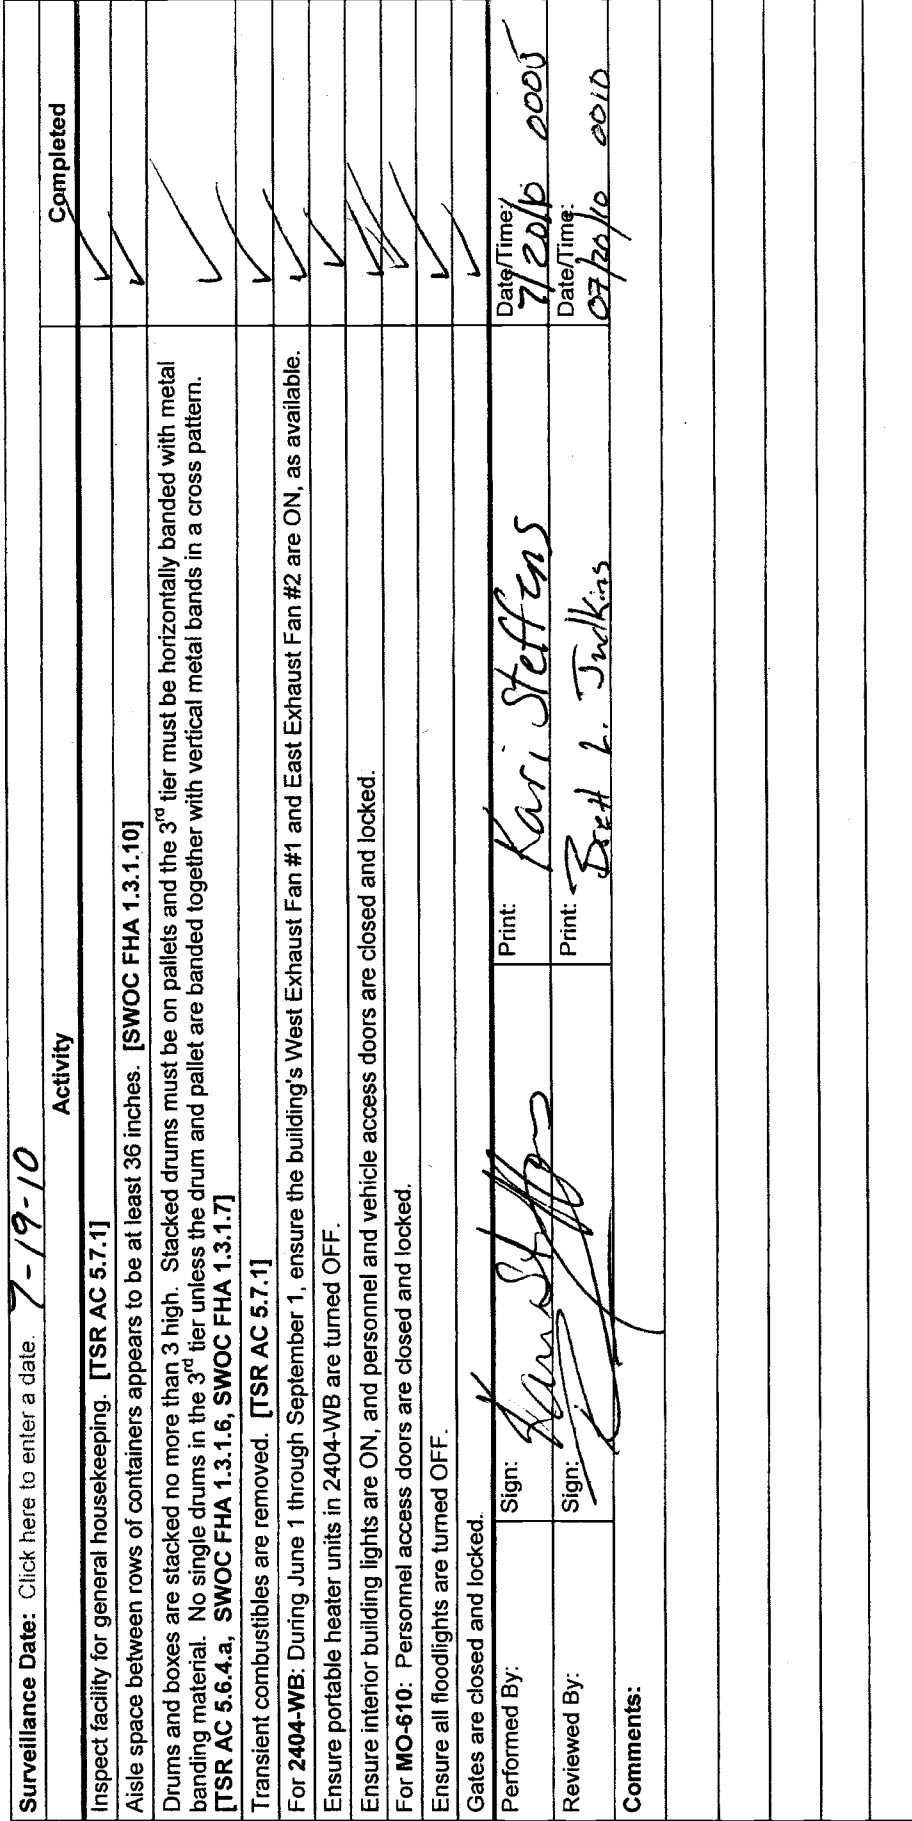 Surveillance Date: Click here to enter a date. 7-19-10
Activity Completed
Inspect facility for general housekeeping. [TSR AC 5.7.1] ✓
Aisle space between rows of containers appears to be at least 36 inches. [SWOC FHA 1.3.1.10] ✓
Drums and boxes are stacked no more than 3 high. Stacked drums must be on pallets and the 3rd tier must be horizontally banded with metal
banding material. No single drums in the 3rd tier unless the drum and pallet are banded together with vertical metal bands in a cross pattern.
[TSR AC 5.6.4.a, SWOC FHA 1.3.1.6, SWOC FHA 1.3.1.7] ✓
Transient combustibles are removed. [TSR AC 5.7.1] ✓
For 2404-WB: During June 1 through September 1, ensure the building's West Exhaust Fan #1 and East Exhaust Fan #2 are ON, as available. ✓
Ensure portable heater units in 2404-WB are turned OFF. ✓
Ensure interior building lights are ON, and personnel and vehicle access doors are closed and locked. ✓
For MO-610: Personnel access doors are closed and locked. ✓
Ensure all floodlights are turned OFF. ✓
Gates are closed and locked. ✓
Performed By: Sign: Kari Steffens Print: Kari Steffens Date/Time: 7/20/10 0005
Reviewed By: Sign: Print: Brett L. Judkins Date/Time: 07/20/10 0010
Comments: